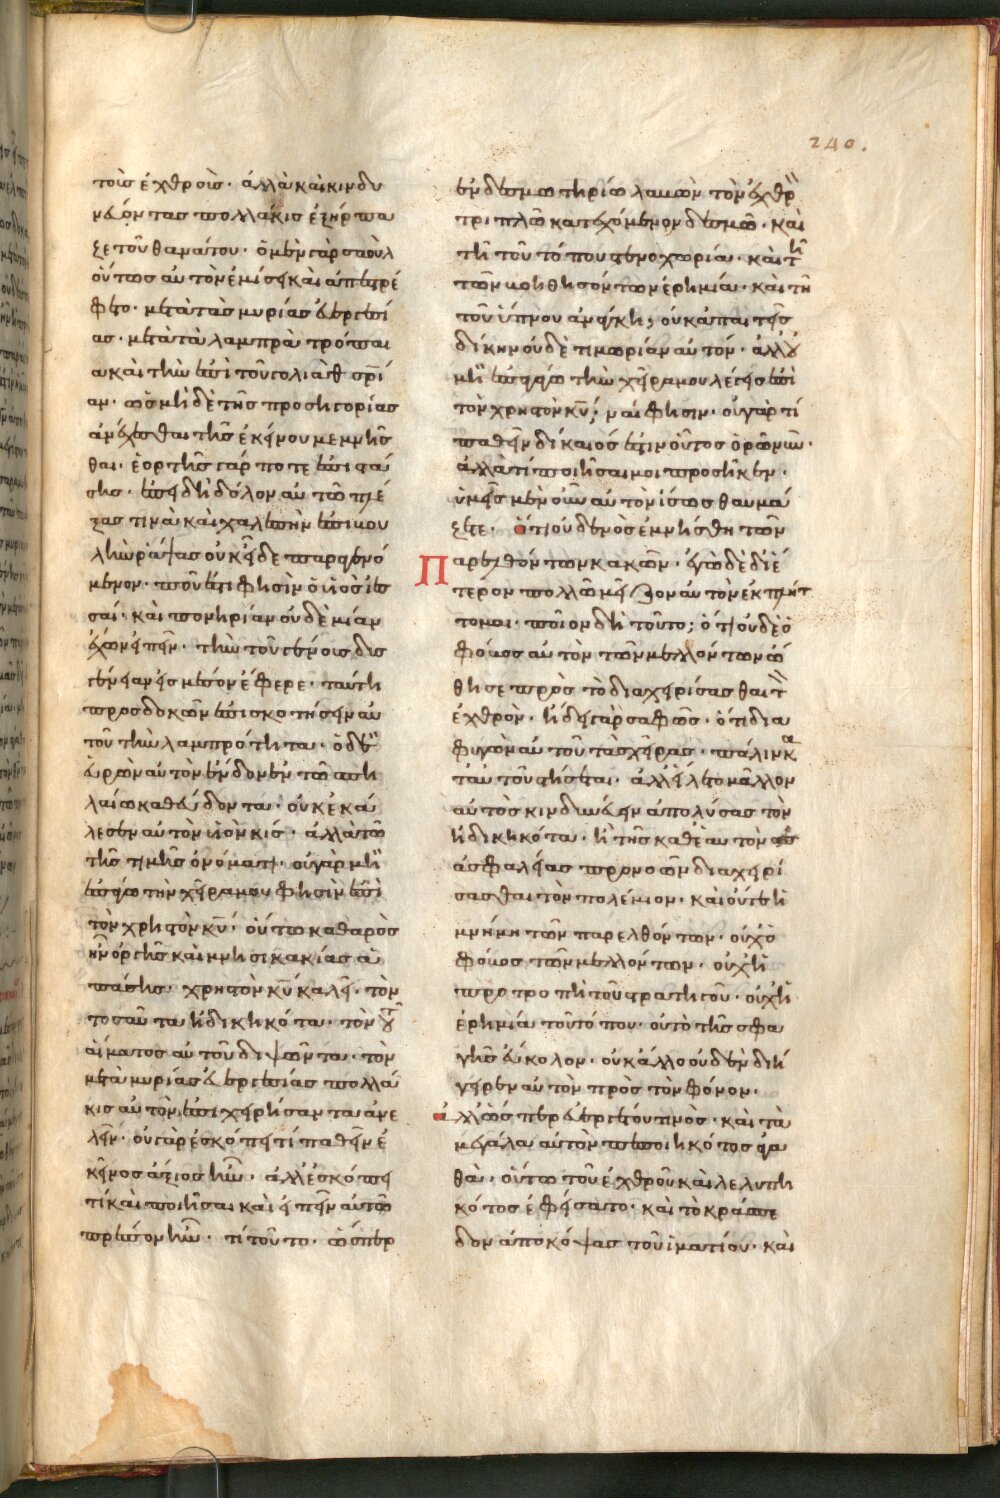 240.
τοῖς ἐχθροῖς· ἀλλὰ καὶ κινδυ
νεύοντας πολλάκις ἐξήρπα
ζε τοῦ θανάτου· ὁ μὲν γὰρ σαοὺλ
οὕτως αὐτὸν ἐμίσει καὶ ἀπεστρέ
φετο· μετὰ τὰς μυρίας εὐεργεσί
ας· μετὰ τὰ λαμπρὰ τρόπαι
α καὶ τὴν ἐπὶ τοῦ γολιὰθ σρί
αν· ὡς μηδὲ τῆς προσηγορίας
ἀνέχεσθαι τῆς ἐκείνου μεμνῆσ
θαι· ἑορτῆς γάρ ποτε ἐπιστά
σης· ἐπειδὴ δόλον αὐτῶ πλέ
ξας τινὰ καὶ χαλεπὴν ἐπιβου
λὴν ῥάψας οὐκ εἶδε παραγενό
μενον· ποῦ ἐστι φησὶν ὁ υἱὸς ἰεσ
σαί· καὶ πονηρίαν οὐδεμίαν
ἔχων εἰπεῖν· τὴν τοῦ γένους δυσ
γένειαν εἰς μέσον ἔφερε· ταύτη
προσδοκῶν ἐπισκοτήσειν αὐ
τοῦ τὴν λαμπρότητα· ὁ δὲ
εὑρὼν αὐτὸν ἔνδον ἐν τῶ σπη
λαίω καθεύδοντα· οὐκ ἐκά
λεσεν αὐτὸν υἱὸν κίς· ἀλλὰ τῶ
τῆς τιμῆς ὀνόματι· οὐ γὰρ μὴ
ἐπάγω τὴν χεῖρα μου φησὶν ἐπὶ
τὸν χριστὸν κυ̅· οὕτω καθαρὸς
ἦν ὀργῆς καὶ μνησικακίας ἁ
πάσης· χριστὸν κυ̅ καλεῖ· τὸν
τοσαῦτα ἠδικηκότα· τὸν τοῦ
αἵματος αὐτοῦ διψῶντα· τὸν
μετὰ μυρίας εὐεργεσίας πολλά
κις αὐτὸν ἐπιχειρήσαντα ἀνε
λεῖν· οὐ γὰρ ἐσκόπει τί παθεῖν ἐ
κεῖνος ἄξιος ἦν· ἀλλ' ἐσκόπει
τί καὶ ποιῆσαι καὶ εἰπεῖν αὐτῶ
πρέπον ἦν· τί τοῦτο· ὥσπερ
ἐν δεσμωτηρίω λαβὼν τὸν ἐχθρὸν
τριπλῶ κατεχόμενον δεσμῶ· καὶ
τῆ τοῦ τόπου στενοχωρία· καὶ τῆ
τῶν βοηθησόντων ἐρημία· καὶ τῆ
τοῦ ὕπνου ἀνάγκη; οὐκ ἀπαιτεῖς
δίκην οὐδὲ τιμωρίαν αὐτόν· ἀλλ' οὐ
μὴ ἐπάγω τὴν χεῖρα μου λέγεις ἐπὶ
τὸν χριστὸν κυ̅; ναί φησιν· οὐ γὰρ τί
παθεῖν δίκαιός ἐστιν οὗτος ὁρῶ νῦν·
ἀλλὰ τί ποιῆσαι μοι προσῆκεν·
ὑμεῖς μὲν οὖν αὐτὸν ἴσως θαυμά
ζετε· ὅτι οὐδενὸς ἐμνήσθη τῶν
παρελθόντων κακῶν· ἐγὼ δὲ δι' ἕ
τερον πολλῶ μεῖζον αὐτὸν ἐκπλήτ
τομαι· ποῖον δὴ τοῦτο; ὅτι οὐδὲ ὁ
φόβος αὐτὸν τῶν μελλόντων ὤ
θησε πρὸς τὸ διαχειρίσασθαι τὸν
ἐχθρόν· ἤδει γὰρ σαφῶς· ὅτι δια
φυγὼν αὐτοῦ τὰς χεῖρας· πάλιν κα
τ' αὐτοῦ στήσεται· ἀλλ' εἵλετο μᾶλλον
αὐτὸς κινδυνεύειν ἀπολύσας τὸν
ἠδικηκότα· ἢ τῆς καθ' ἑαυτὸν
ἀσφαλείας προνοῶν διαχειρί
σασθαι τὸν πολέμιον· καὶ οὔτε ἡ
μνήμη τῶν παρελθόντων· οὐχ ὁ
φόβος τῶν μελλόντων· οὐχ ἡ
προτροπὴ τοῦ στρατηγοῦ· οὐχ ἡ
ἐρημία τοῦ τόπου· οὐ τὸ τῆς σφα
γῆς εὔκολον· οὐκ ἄλλο οὐδὲν διή
γειρεν αὐτὸν πρὸς τὸν φόνον·
ἀλλ' ὥσπερ εὐεργέτου τινὸς· καὶ τὰ
μεγάλα αὐτὸν πεποιηκότος ἀγα
θά· οὕτω τοῦ ἐχθροῦ καὶ λελυπη
κότος ἐφείσατο· καὶ τὸ κράσπε
δον ἀποκόψας τοῦ ἱματίου· καὶ